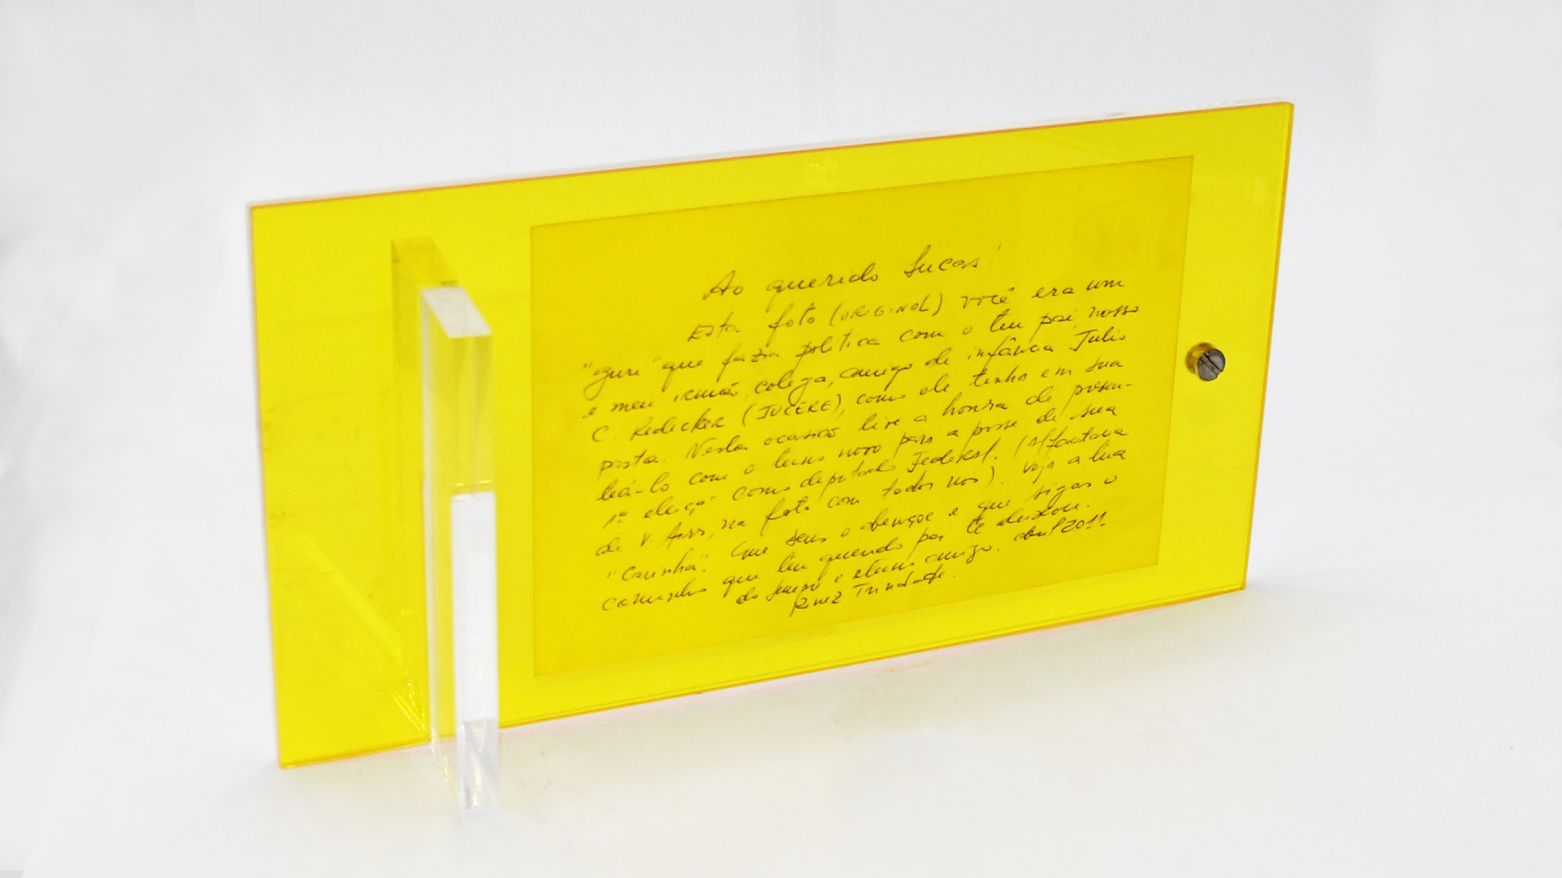 Ao querido Lucas!
Esta foto (ORIGINAL) você era um
"guri" que fazia politica com o teu pai, nosso
e meu irmão, colega, amigo de infância Julio
C. Redecker (JUCERE), como ele tenho em sua
pasta. Nesta ocasião tive a honra de presen-
teá-lo com o terno novo para a posse de sua
1ª eleição como deputado Federal. (a
de V Aires, na foto com todos nos). Veja a tua
"carinha". Que Deus o abençoe e que sigas o
caminho que teu querido pai te deixou.
do sempre e eterno amigo. abril 2011.
Trindade.